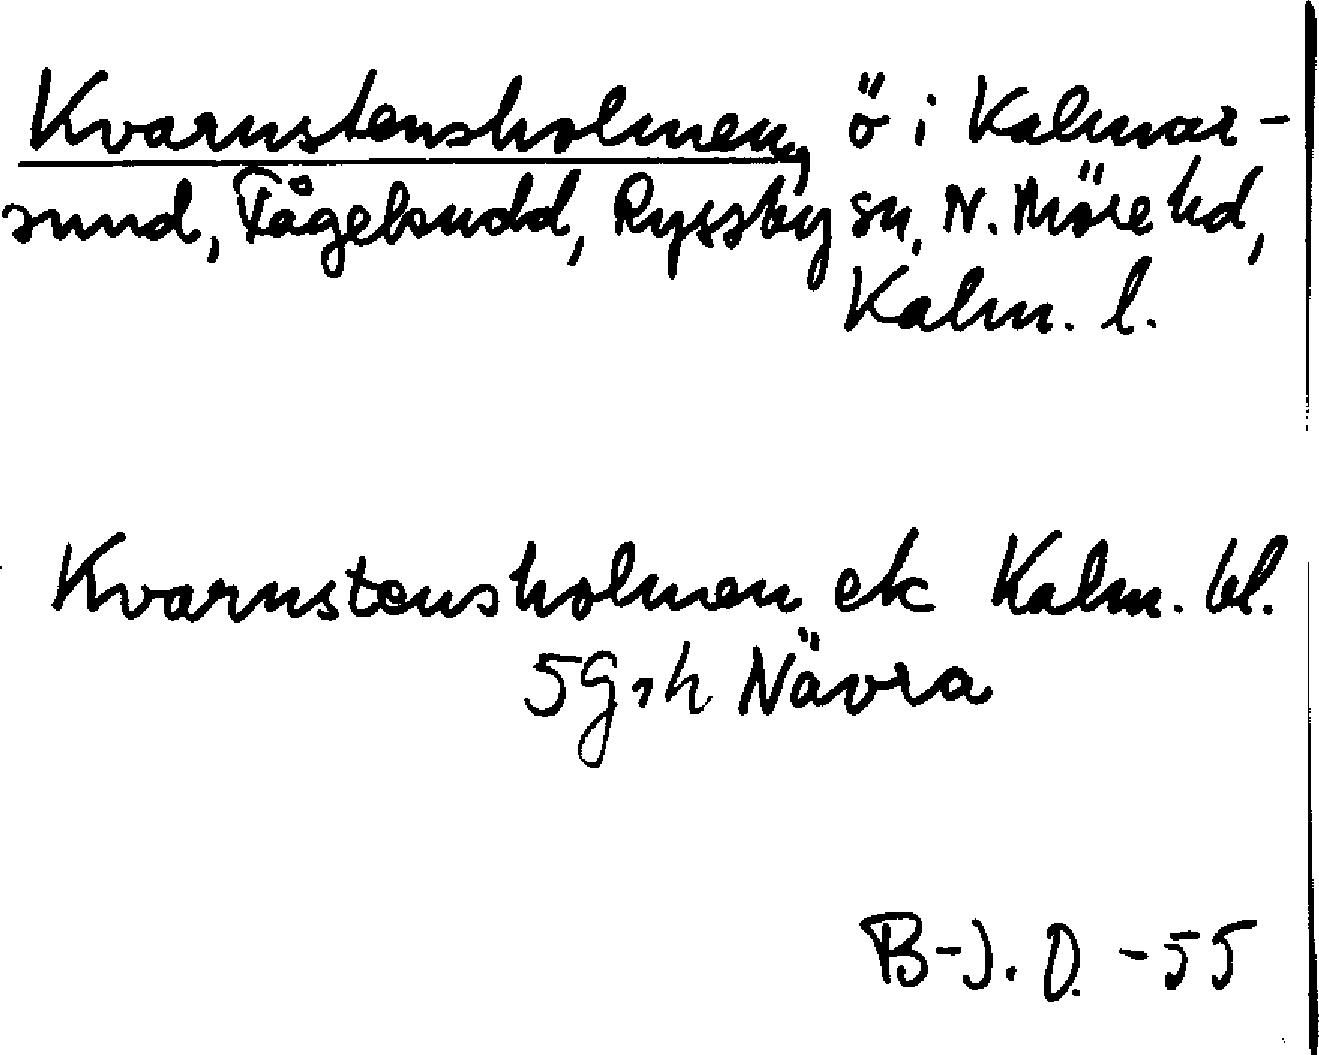 Kvarnstensholmen, ö i Kalmar-
sund, Tågebudd, Ryssby sn, N. Möre hd,
Kalm. l.
Kvarnstensholmen ek Kalm. bl.
5g, h Nävra
B-J. O. -55